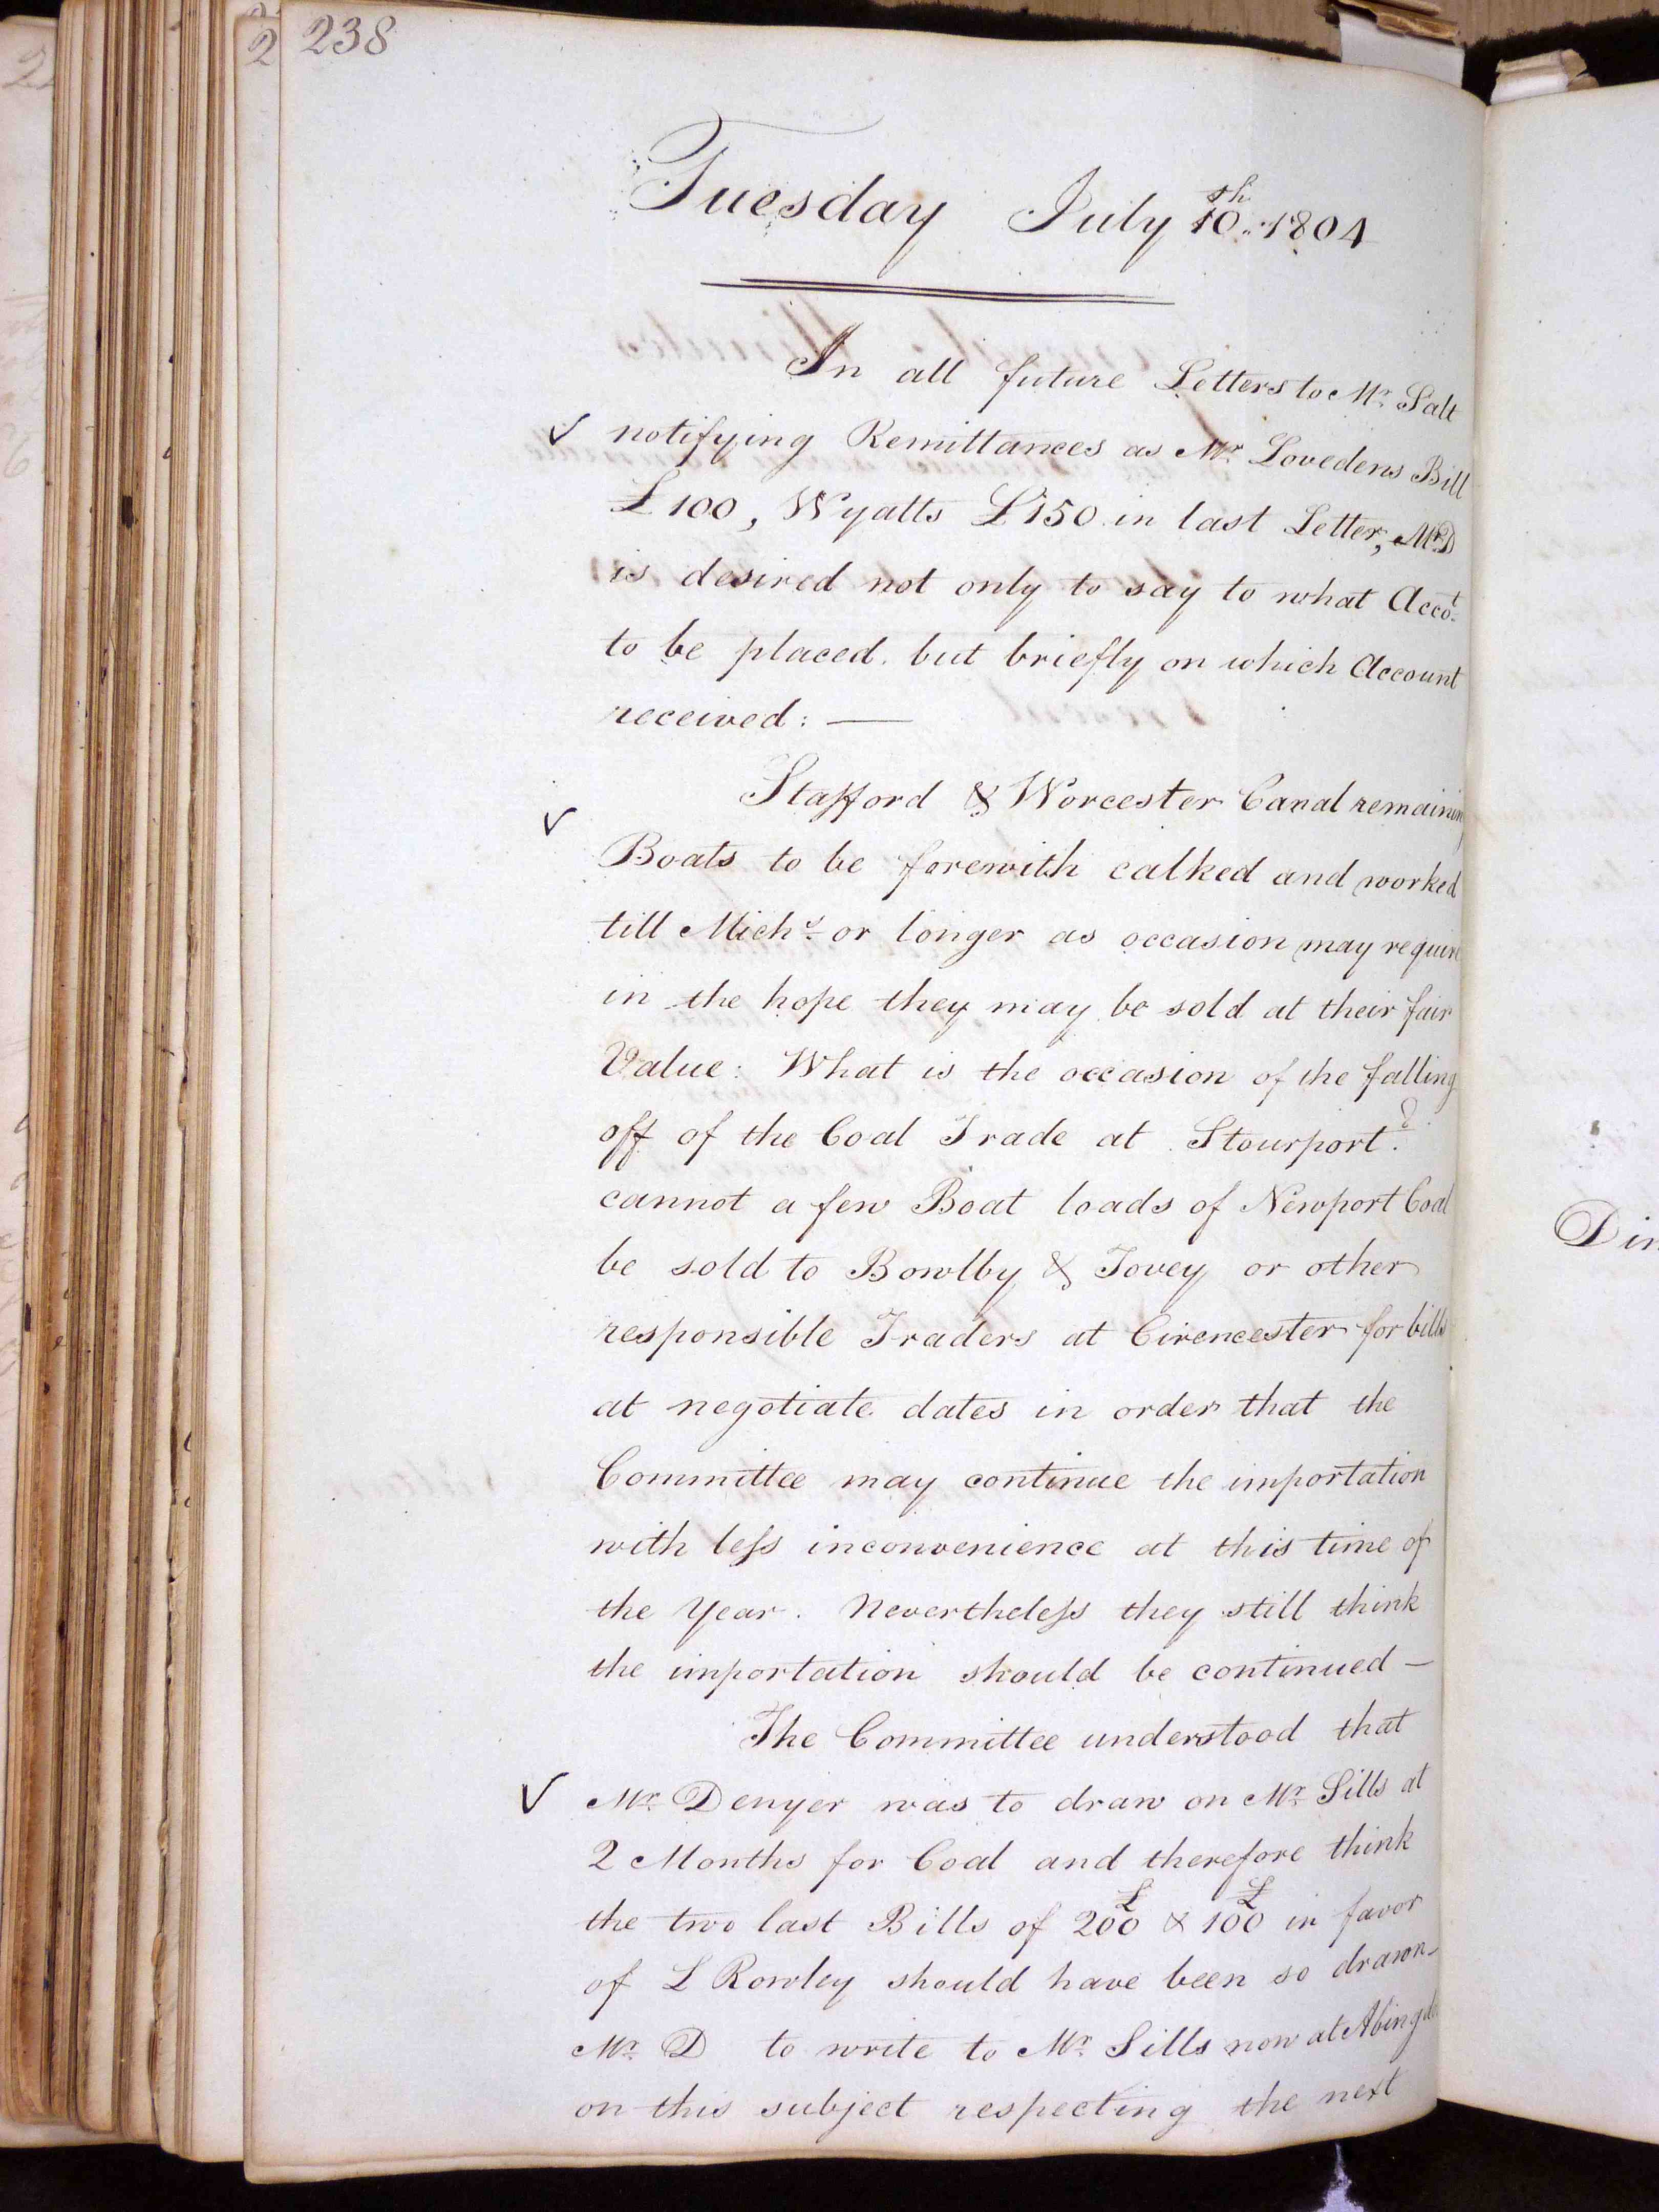 238
Tuesday July 10th. 1804
In all future Letters to Mr. Salt
✓ notifying Remittances as Mr. Lovedens Bill
£100, Wyatts £150 in last Letter, Mr. D
is desired not only to say to what Accot.
to be placed. but briefly on which Account
received: —
Stafford & Worcester Canal remaining
✓ Boats to be forewith calked and worked
till Michs. or longer as occasion may require
in the hope they may be sold at their fair
Value: What is the occasion of the falling
off of the Coal Trade at Stourport?
cannot a few Boat loads of Newport Coal
be sold to Bowlby & Tovey or other
responsible Traders at Cirencester for bills
at negotiate dates in order that the
Committee may continue the importation
with less inconvenience at this time of
the Year. Nevertheless they still think
the importation should be continued —
The Committee understood that
✓ Mr. Denyer was to draw on Mr. Sills at
2 Months for Coal and therefore think
the two last Bills of 200£ & 100£ in favor
of L Rowley should have been so drawn —
Mr. D to write to Mr. Sills now at Abingdon
on this subject respecting the next
Din